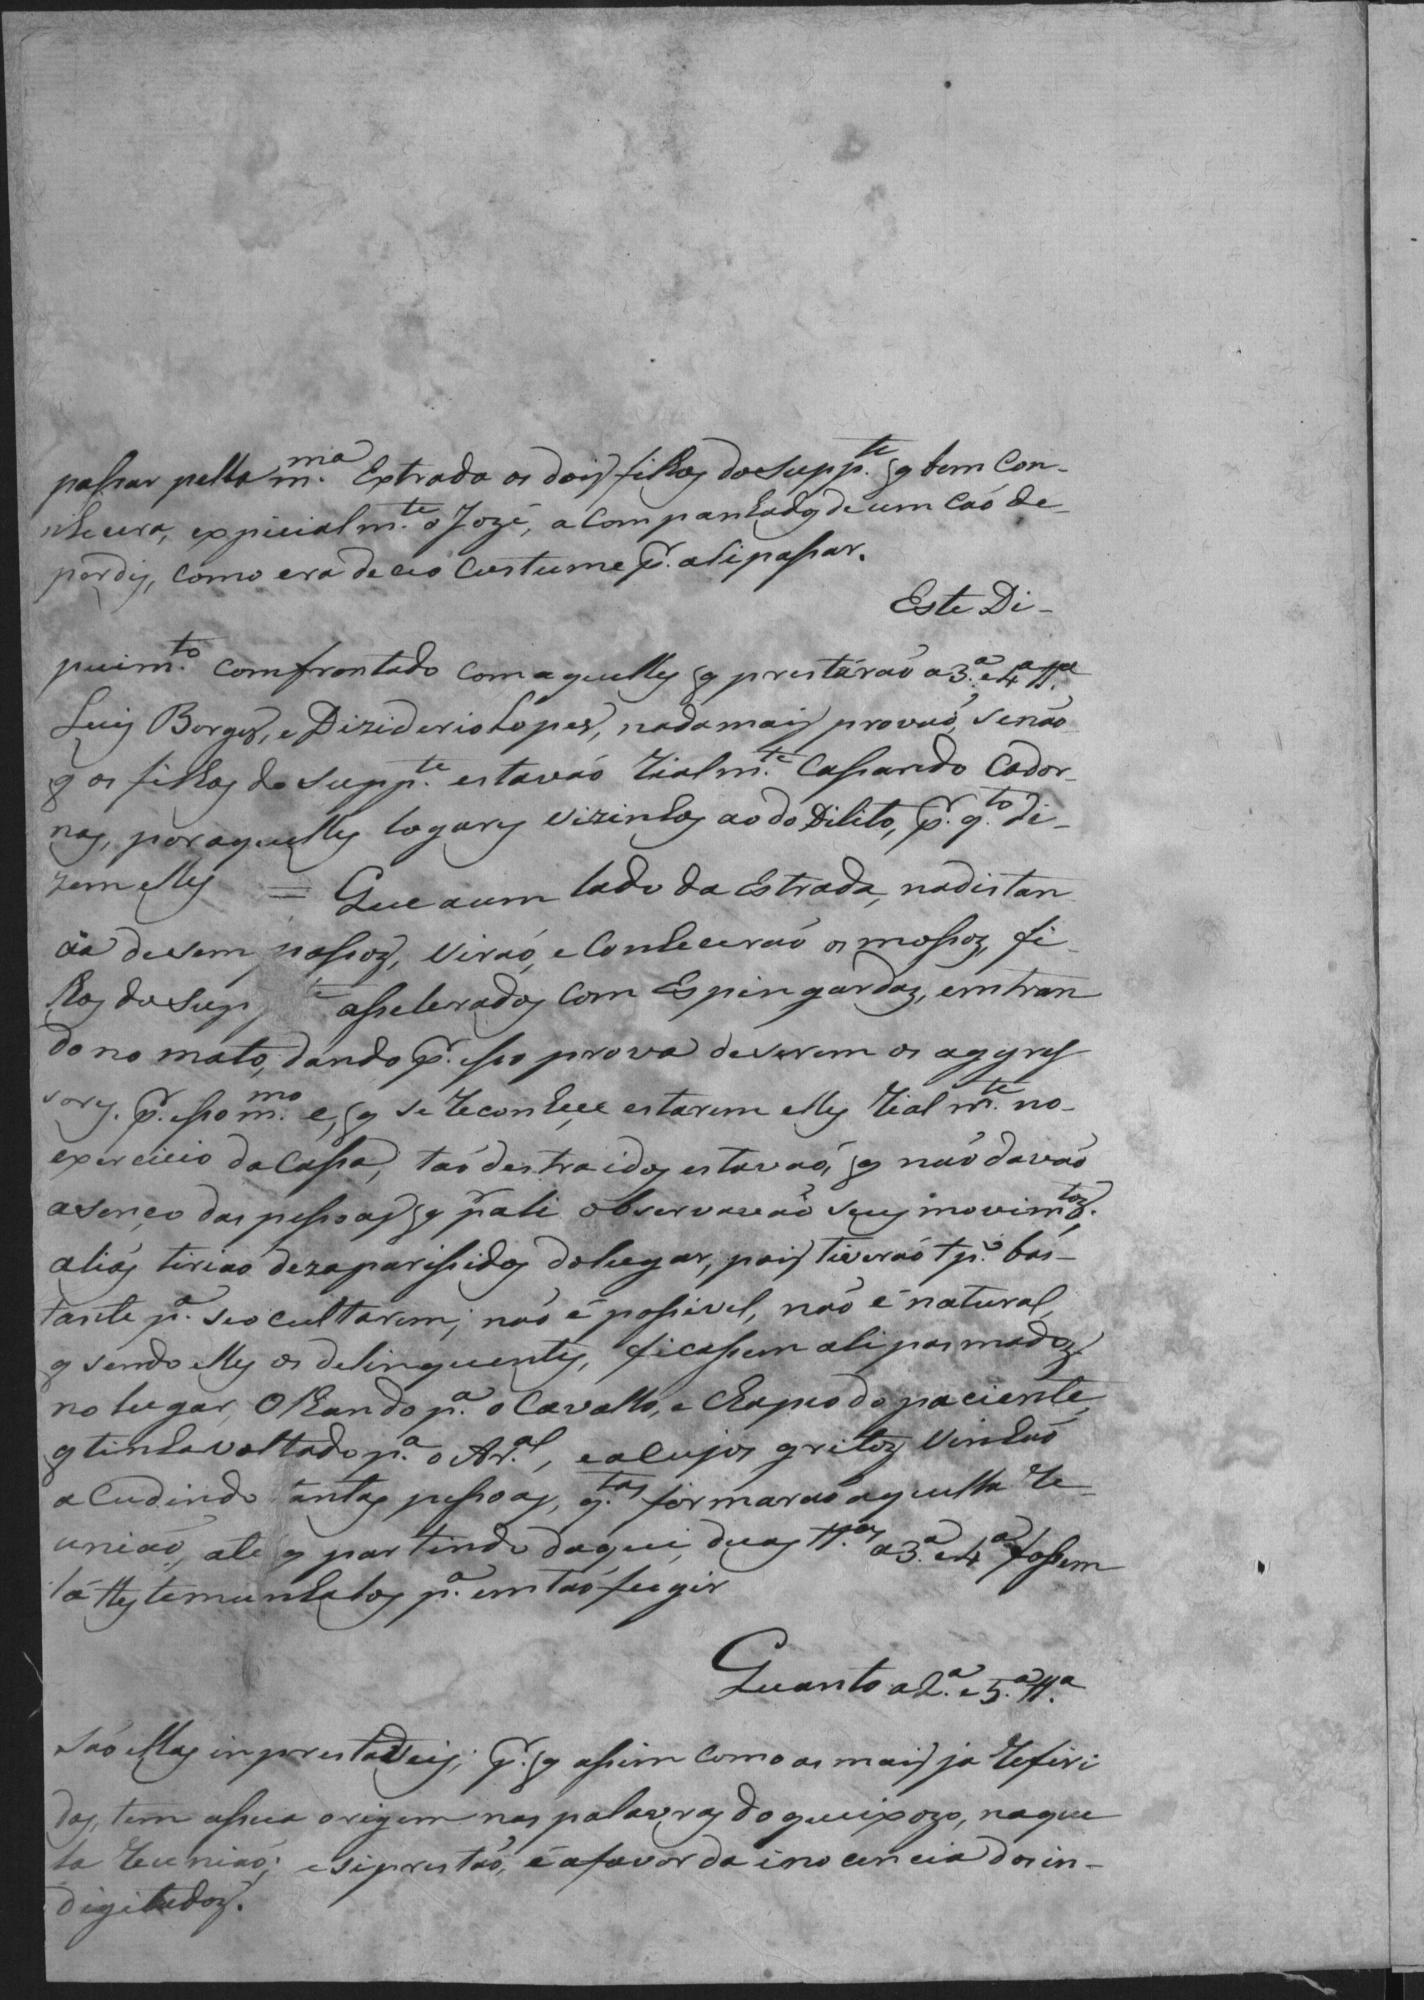 passar pella m.ma Extrada os dois filhos do Supp.te q bem con-
nhecera, expicialm.te o Jozé, a companhados de um caó de-
perdis, como era de ceó custume p.r ali passar.
Este Di-
puim.to comfrontado com aquelles q prestáraó a 3.a e 4.a tt.a
Luis Borges, e Dizideriо Lopes, nada mais provaó, senaó
q os filhos do Supp.te estavaó rialm.te cassando cador-
nas, por aquelles logares vizinhos ao do Dilito, p.r q.to di-
zem elles = Que a um lado da Estrada, na distan
cia de sem passos, viraó, e conheceraó os mossos, fi-
lhos do Sup te asselerados com Espingardas, emtran
do no mato, dando p.r isso prova de serem os aggres
sores. p.r isso m.mo e, q se reconhece estarem elles rialm.te no-
exercicio da cassa, taó destraidos estavaó, q naó davaó
asenço das pessoas q p.r ali observavaó seus movim.tos,
aliás tiriaó dezaparissidos do lugar, pois tiveraó tp.o bas-
tante p.a se ocultarem; naó é possivel, naó é natural,
q sendo elles os delinquentes, ficassem ali pasmados
no lugar, Olhando p.a o Cavallo, e chapeo do paciente,
q tinha voltado p.a o Ar.al, e a cujos gritos vinhaó
a cudindo tantas pessoas, q.tas formaraó aquella re-
uniaó, até q partindo daqui, duas tt.as a 3.a e 4.a fossem
lá testemunhalos p.a emtaó fugir
Quanto a 2.a e 5.a tt.a
Saó ellas inprestaveis; p.r q assim como as mais ja refiri
das, tem assua origem nas palavras do queixozo, naque
la reuniaó; e si prestaó, é a favor da inocencia dos in-
digitados.